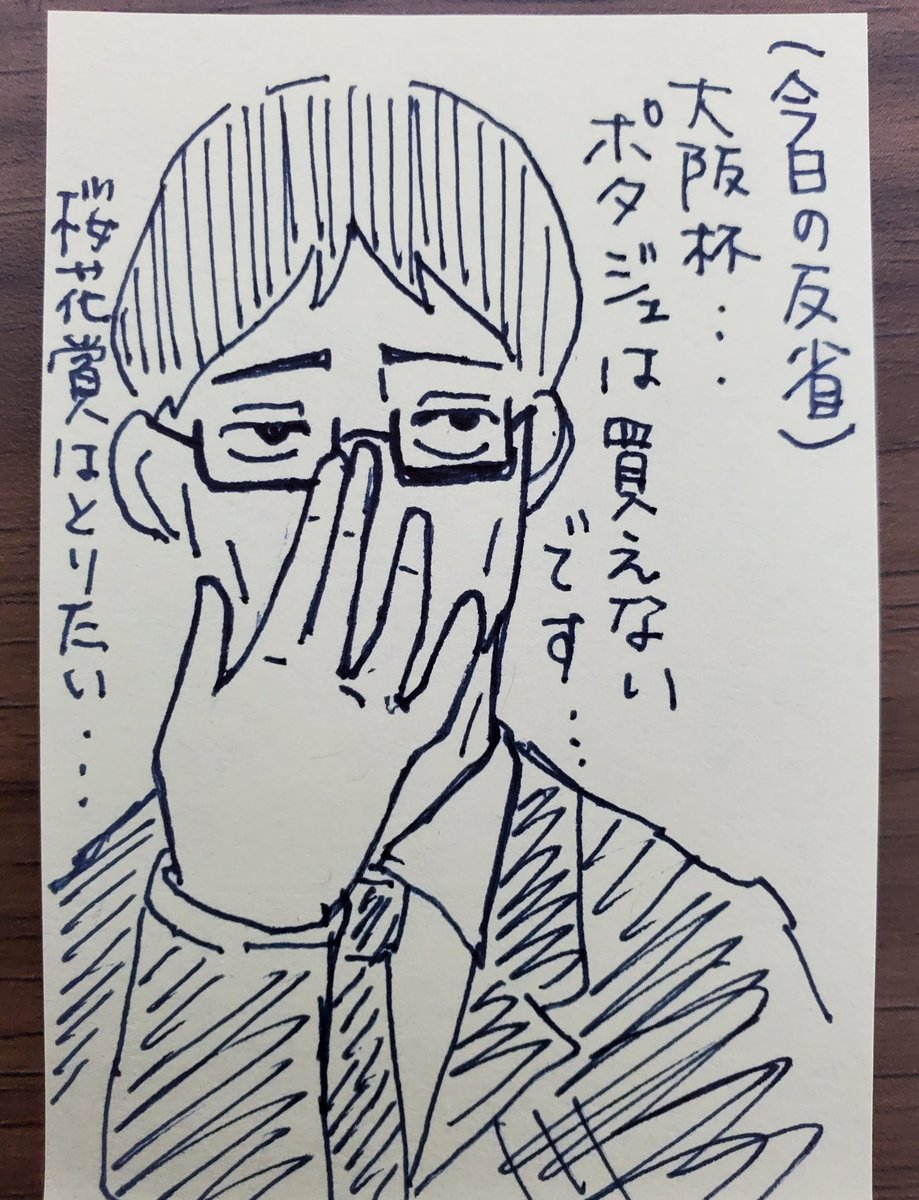 (今日の反省)
大阪杯...
ポタジェは買えない
です...
桜花賞はとりたい...